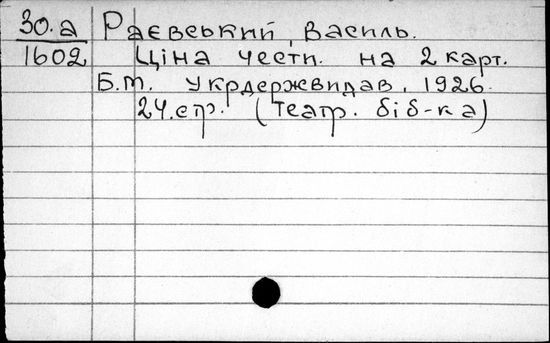 30.а Раєвський, Василь.
1602 Ціна чести. на 2 карт.
Б.М. Укрдержвидав, 1926.
24.стр. (Театр. біб-ка)